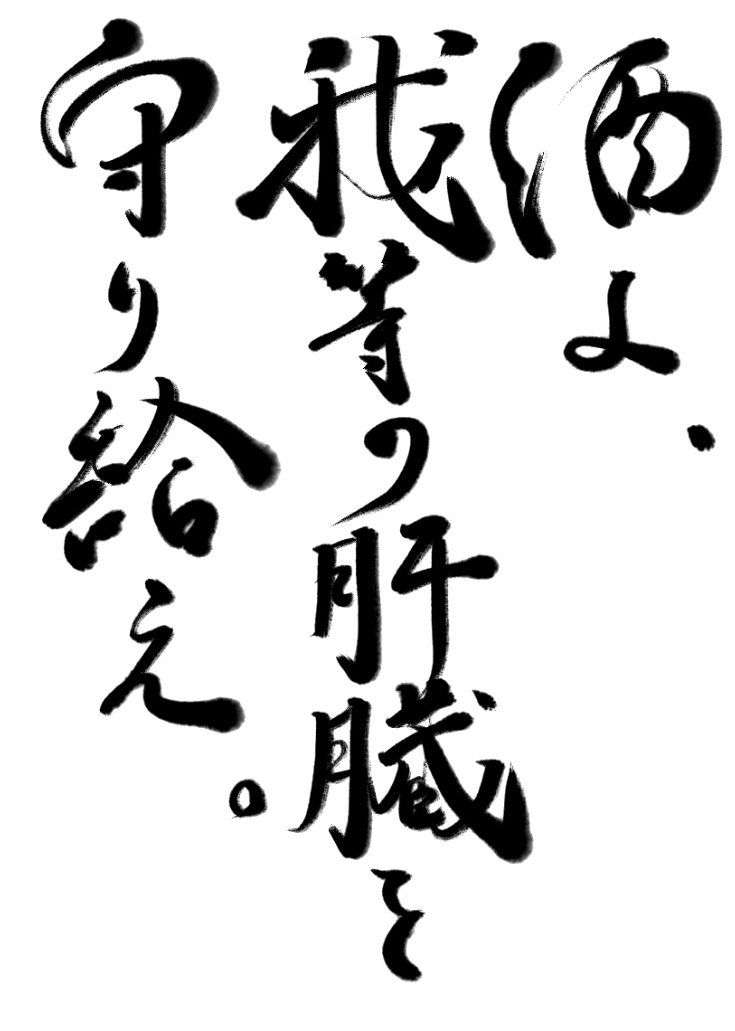 酒よ、
我等の肝臓を
守り給え。